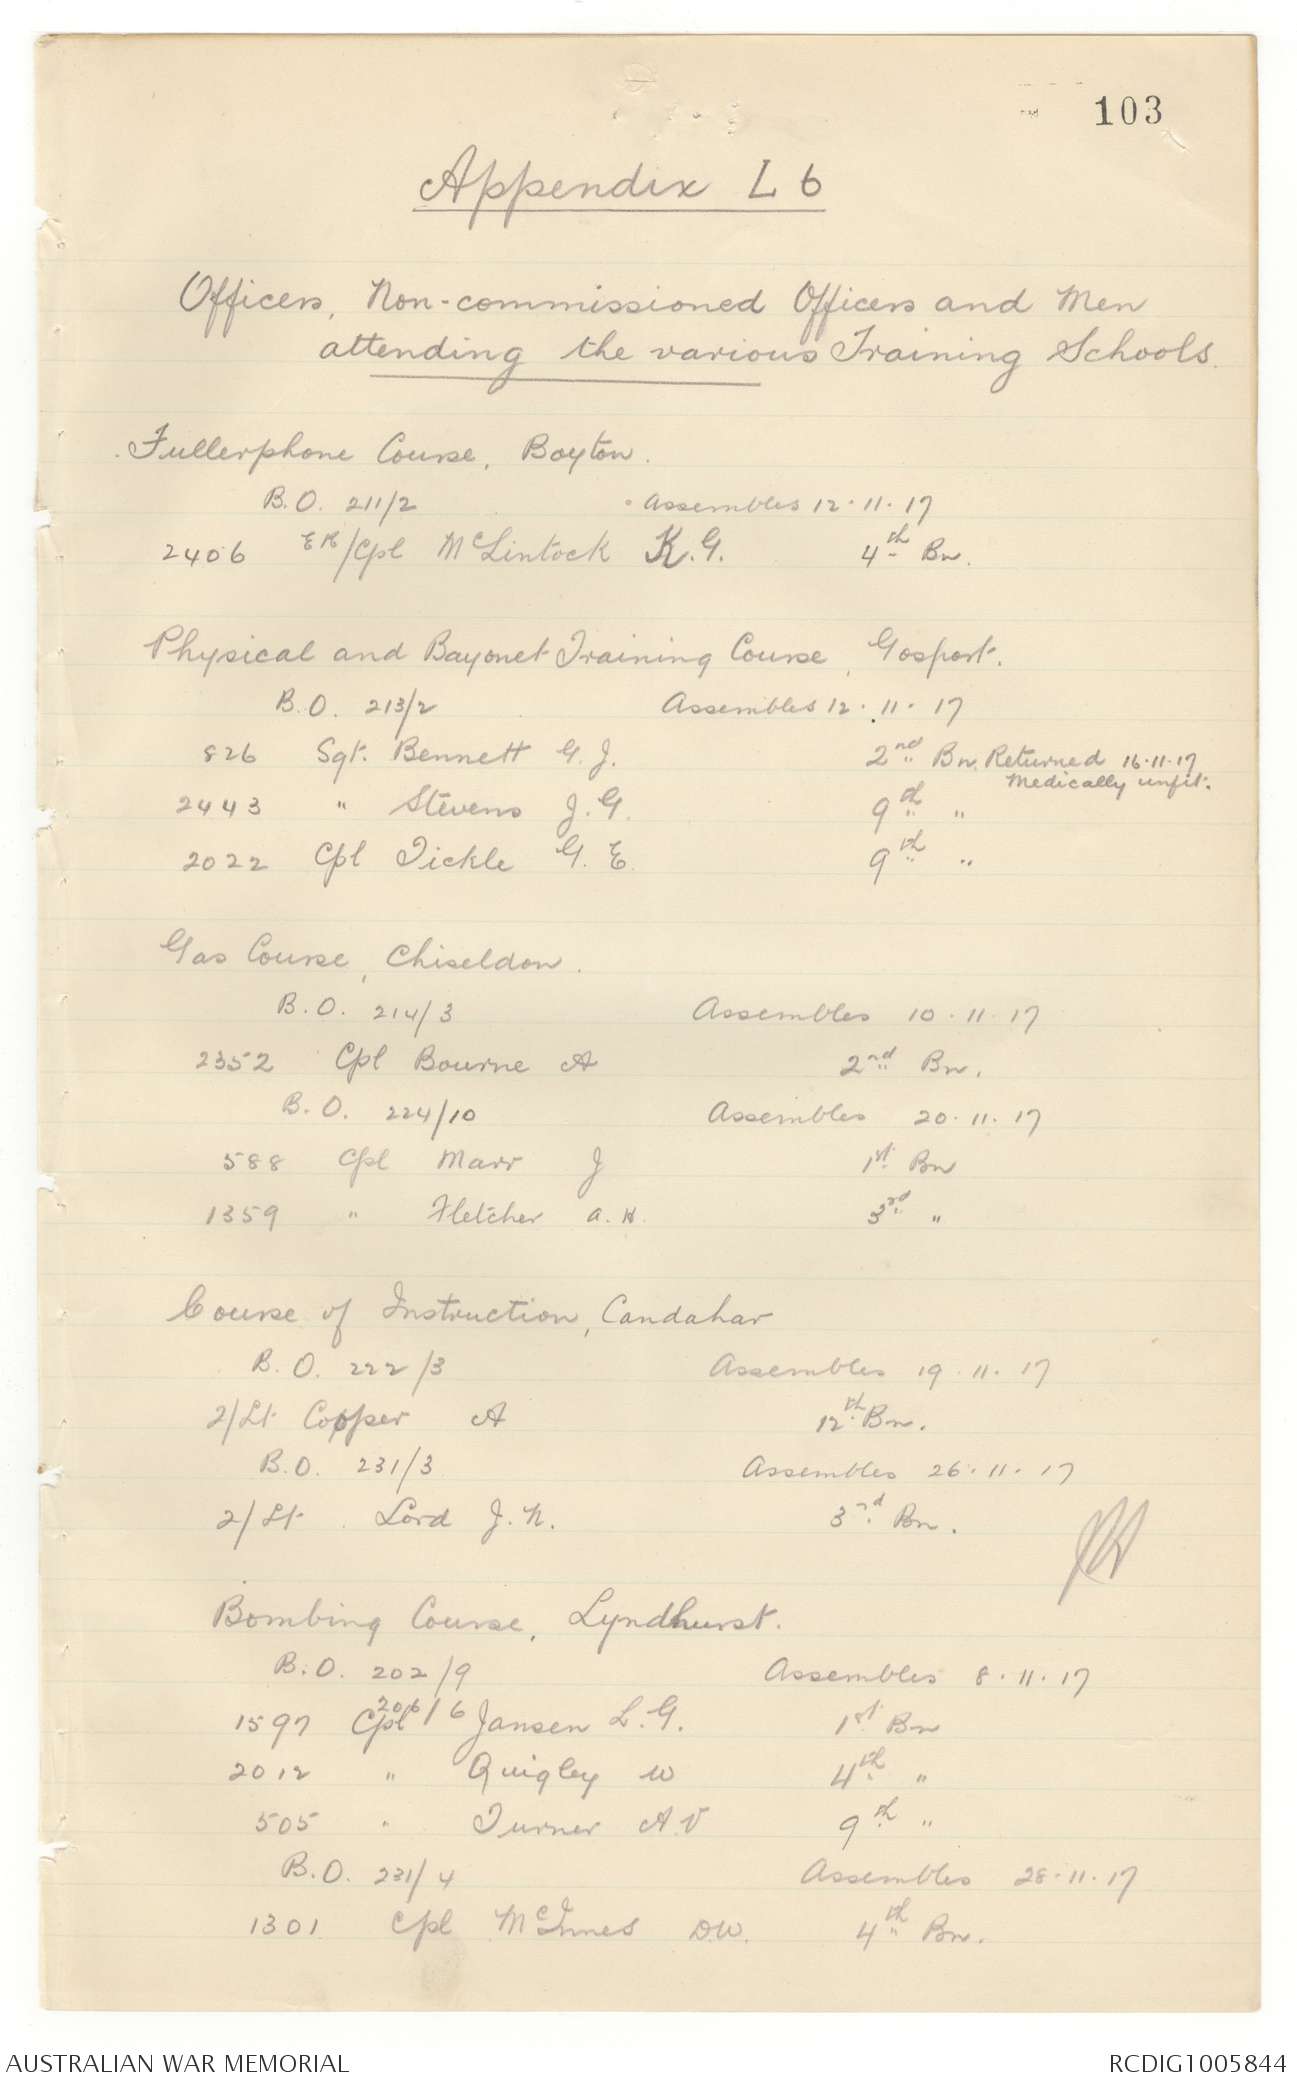 103
Appendix L 6
Officers, Non-commissioned Officers and Men
attending the various Training Schools.
Fullerphone Course, Boyton.
B.O. 211/2 Assembles 12.11.17
2406 ER/Cpl McLintock K.G. 4th Bn.
Physical and Bayonet Training Course, Gosport.
B.O. 213/2 Assembles 12.11.17
826 Sgt. Bennett G.J. 2nd Bn. Returned 16.11.17
Medically unfit.
2443 " Stevens J.G. 9th "
2022 Cpl Tickle G.E. 9th "
Gas Course, Chiseldon.
B.O. 214/3 Assembles 10.11.17
2352 Cpl Bourne A 2nd Bn.
B.O. 224/10 Assembles 20.11.17
588 Cpl Marr J 1st Bn
1359 " Fletcher A.H. 3rd "
Course of Instruction, Candahar
B.O. 222/3 Assembles 19.11.17
2/Lt Copper A 12th Bn.
B.O. 231/3 Assembles 26.11.17
2/Lt Lord J.N. 3rd Bn.
Bombing Course, Lyndhurst.
B.O. 202/9 Assembles 8.11.17
206/6
1597 Cpl Jansen L.G. 1st Bn
2012 " Quigley W 4th "
505 " Turner A.V 9th "
B.O. 231/4 Assembles 28.11.17
1301 Cpl McInnes D.W. 4th Bn.
AUSTRALIAN WAR MEMORIAL RCDIG1005844